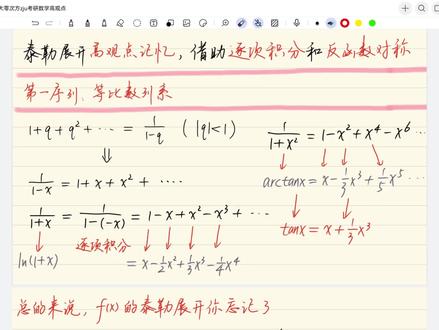 大零次方zju考研数学高观点
泰勒展开高观点记忆，借助逐项积分和反函数对称
第一序列：等比数列系
1+q+q²+⋯ = 1/(1-q) (|q|<1)
1/(1+x²) = 1-x²+x⁴-x⁶⋯
⇓
↓ ↓ ↓ ↘
1/(1-x) = 1+x+x²+⋯
arctanx = x-1/3x³+1/5x⁵⋯
1/(1+x) = 1/(1-(-x)) = 1-x+x²-x³+⋯
↓ ↓
tanx = x+1/3x³
↓ 逐项积分 ↓ ↓ ↓ ↓
ln(1+x) = x-1/2x²+1/3x³-1/4x⁴
总的来说，f(x)的泰勒展开你忘记了